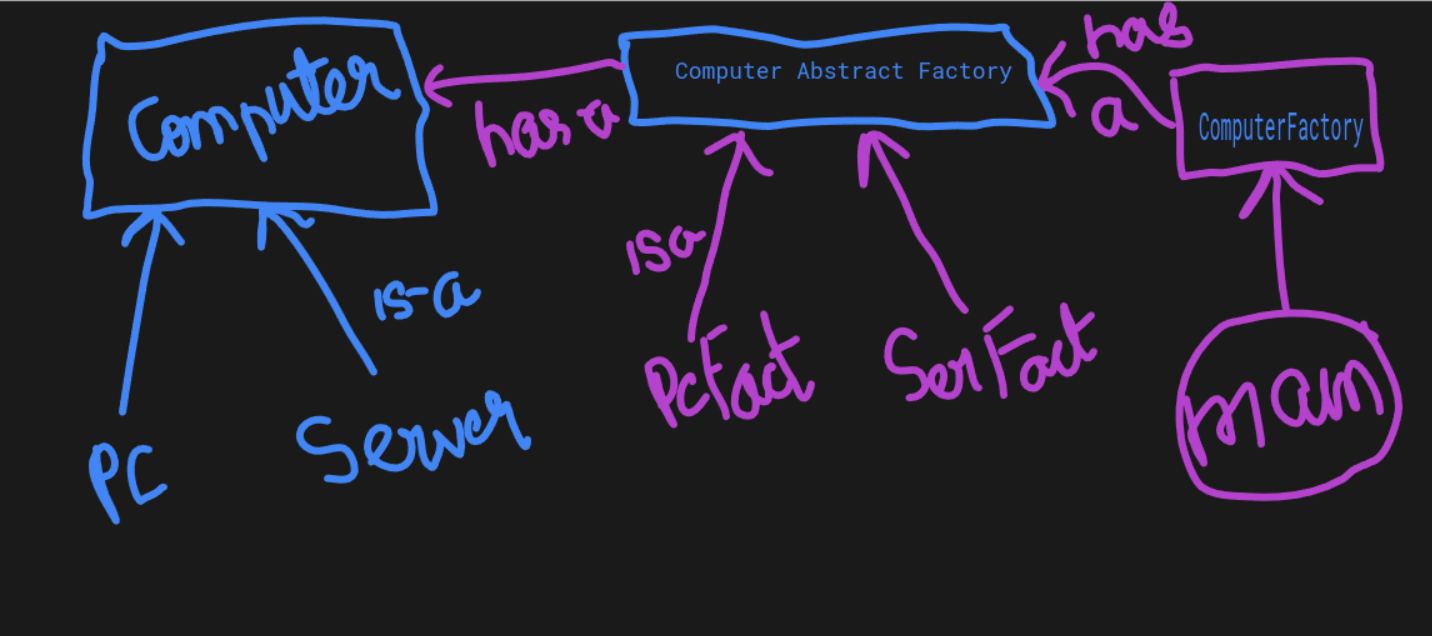 Computer
has a
Computer Abstract Factory
has
a
ComputerFactory
is-a
is a
PC
Server
PcFact
SerFact
main